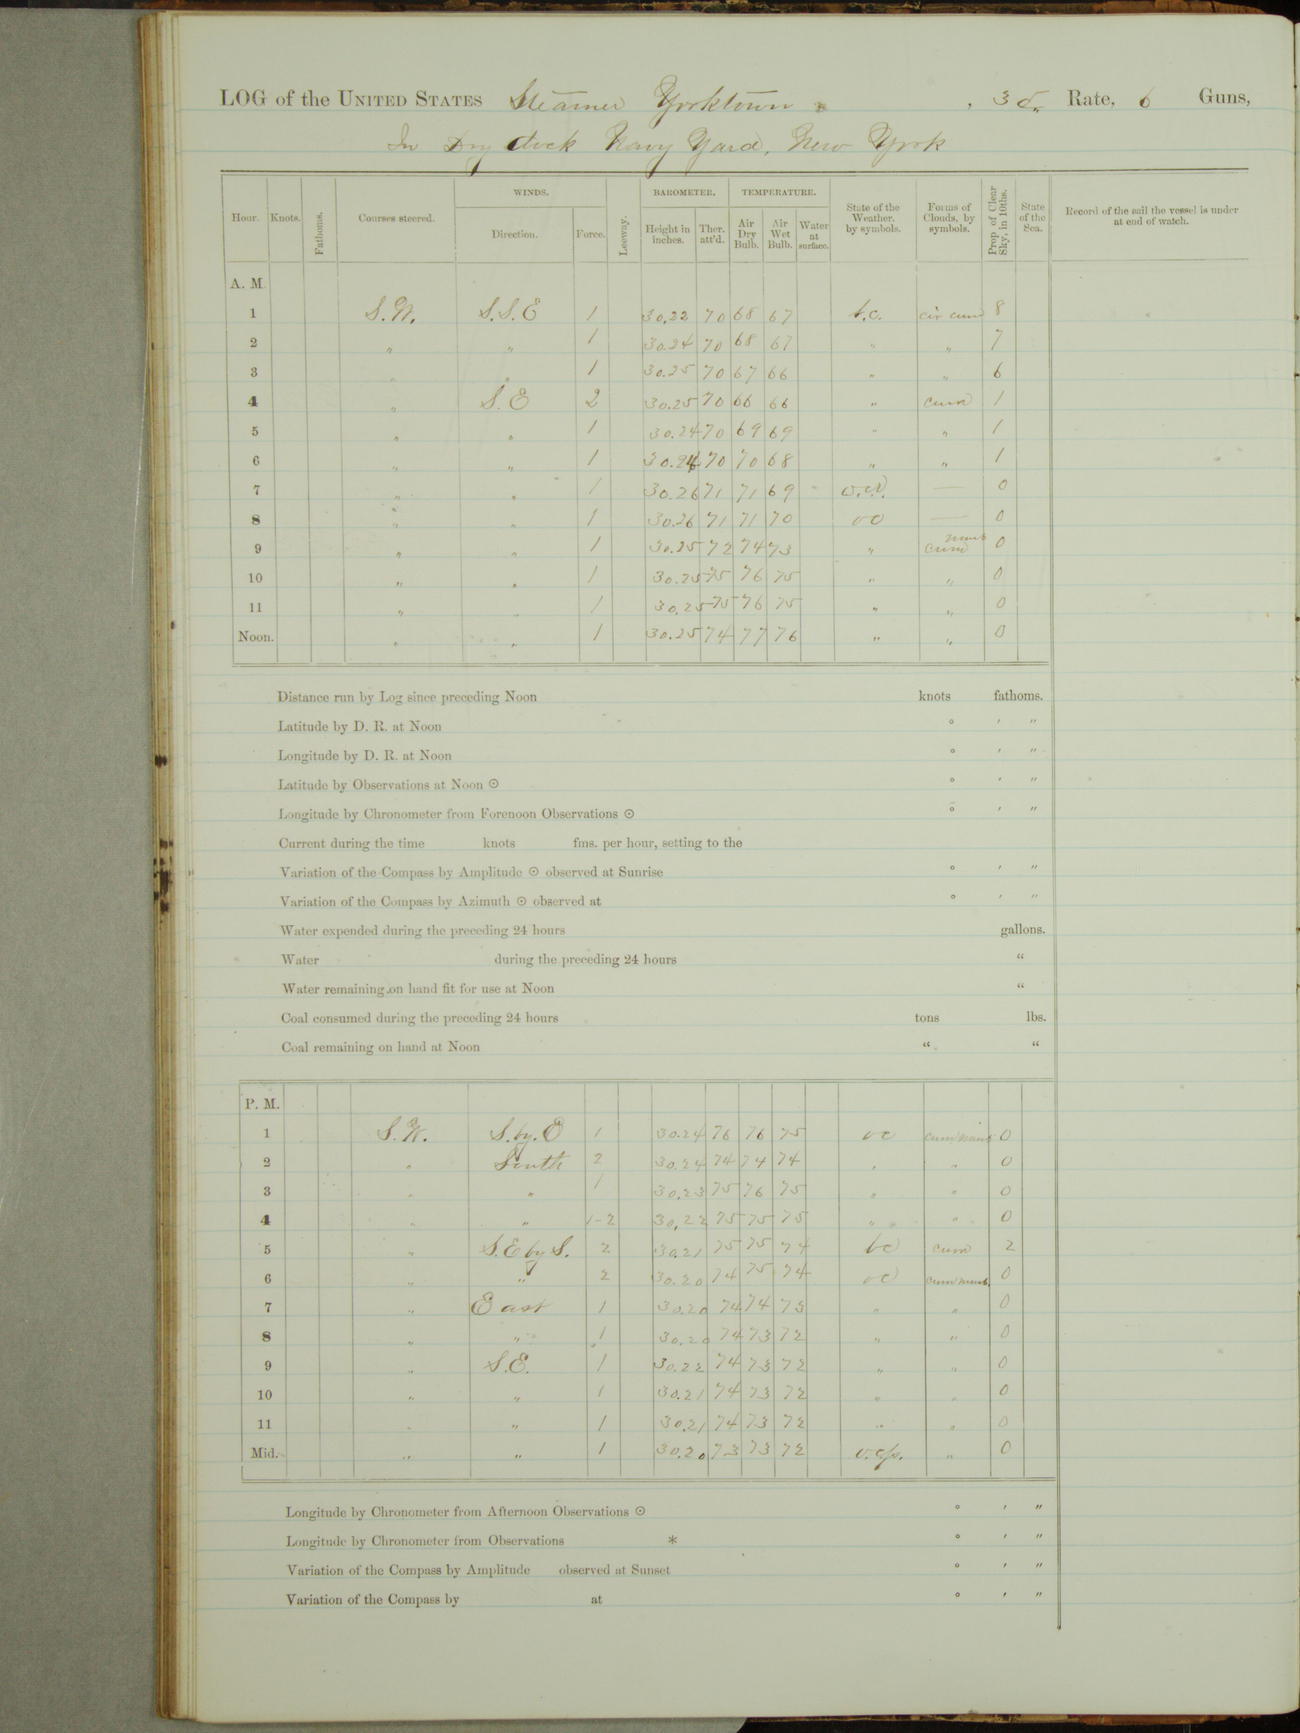 LOG of the UNITED STATES Steamer Yorktown , 3d. Rate, 6 Guns,
In Dry dock Navy Yard, New York
Hour. Knots. Fathoms. Courses steered. WINDS. Direction. Force. Leeway. BAROMETER. Height in inches. Ther. att'd. TEMPERATURE. Air Dry Bulb. Air Wet Bulb. Water at surface. State of the Weather, by symbols. Forms of Clouds, by symbols. Prop of Clear Sky, in 10ths. State of the Sea. Record of the sail the vessel is under at end of watch.
A. M.
1 S.W. S.S.E 1 30.22 70 68 67 b.c. cir cum 8
2 " " 1 30.24 70 68 67 " " 7
3 " " 1 30.25 70 67 66 " " 6
4 " S.E 2 30.25 70 66 66 " cum 1
5 " " 1 30.24 70 69 69 " " 1
6 " " 1 30.24 70 70 68 " " 1
7 " " 1 30.26 71 71 69 — 0
8 " " 1 30.26 71 71 70 oc — 0
9 " " 1 30.25 72 74 73 " cum nimb 0
10 " " 1 30.25 75 76 75 " " 0
11 " " 1 30.25 75 76 75 " " 0
Noon. " " 1 30.25 74 77 76 " " 0
Distance run by Log since preceding Noon knots fathoms.
Latitude by D. R. at Noon ° ′ ″
Longitude by D. R. at Noon ° ′ ″
Latitude by Observations at Noon ☉ ° ′ ″
Longitude by Chronometer from Forenoon Observations ☉ ° ′ ″
Current during the time knots fms. per hour, setting to the
Variation of the Compass by Amplitude ☉ observed at Sunrise ° ′ ″
Variation of the Compass by Azimuth ☉ observed at ° ′ ″
Water expended during the preceding 24 hours gallons.
Water during the preceding 24 hours “
Water remaining on hand fit for use at Noon “
Coal consumed during the preceding 24 hours tons lbs.
Coal remaining on hand at Noon “ “
P. M.
1 S.W. S.by.E 1 30.24 76 76 75 oc cum nimb 0
2 " South 2 30.24 74 74 74 " " 0
3 " " 1 30.23 75 76 75 " " 0
4 " " 1-2 30.22 75 75 75 " " 0
5 " S.E by S. 2 30.21 75 75 74 bc cum 2
6 " " 2 30.20 74 75 74 oc cum nimb. 0
7 " East 1 30.20 74 74 73 " " 0
8 " " 1 30.20 74 73 72 " " 0
9 " S.E. 1 30.22 74 73 72 " " 0
10 " " 1 30.21 74 73 72 " " 0
11 " " 1 30.21 74 73 72 " " 0
Mid. " " 1 30.20 73 73 72 o.c.p. " 0
Longitude by Chronometer from Afternoon Observations ☉ ° ′ ″
Longitude by Chronometer from Observations * ° ′ ″
Variation of the Compass by Amplitude observed at Sunset ° ′ ″
Variation of the Compass by at ° ′ ″